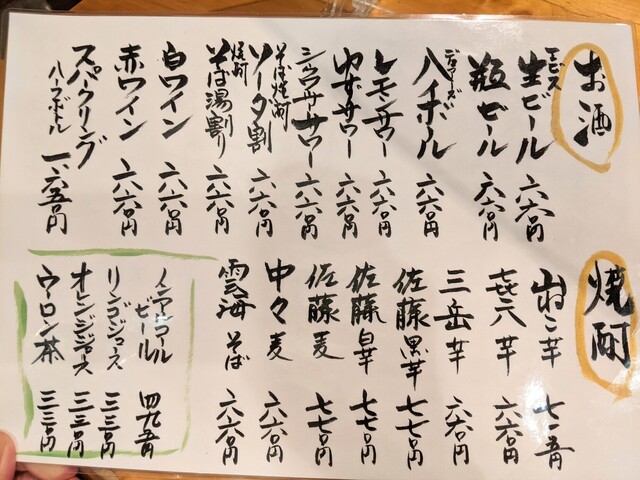 お酒
エビス
生ビール 六六〇円
瓶ビール 六六〇円
ハイボール 六六〇円
レモンサワー 六六〇円
ゆずサワー 六六〇円
シークワサワー 六六〇円
そば焼酎
ソーダ割 六六〇円
焼酎
そば湯割り 六六〇円
白ワイン 六六〇円
赤ワイン 六六〇円
スパークリング
ハーフボトル 一、六五〇円
焼酎
山ねこ 芋 七一五円
㐂六 芋 六六〇円
三岳 芋 六六〇円
佐藤 黒芋 七七〇円
佐藤 白芋 七七〇円
佐藤 麦 七七〇円
中々 麦 六六〇円
雲海 そば 六六〇円
ノンアルコール
ビール 四九五円
リンゴジュース 三三〇円
オレンジジュース 三三〇円
ウーロン茶 三三〇円